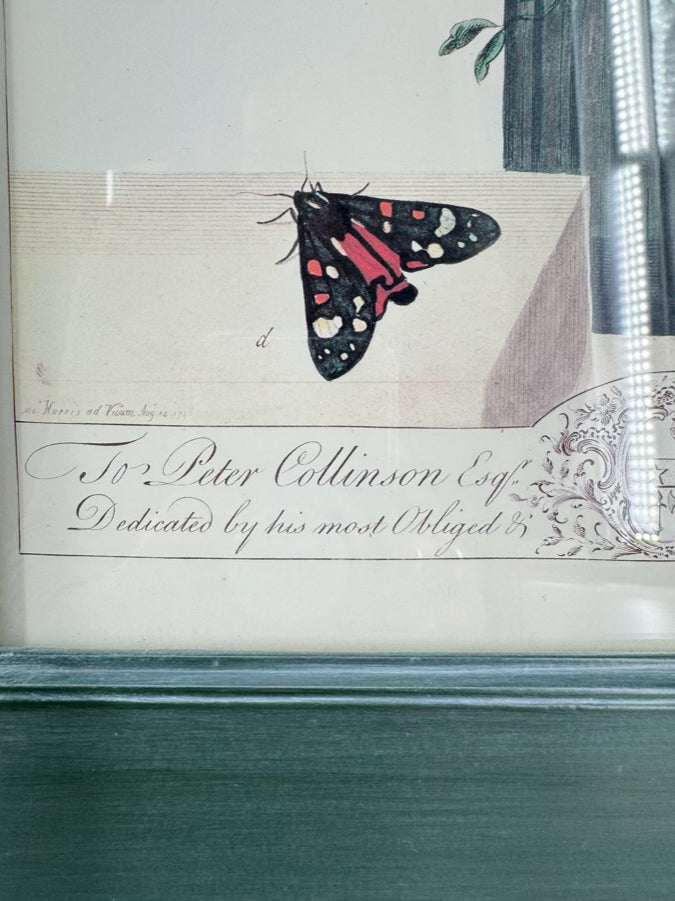 d
Harris ad Vivam Aug. 14. 17
To Peter Collinson Esqr.
Dedicated by his most Obliged &